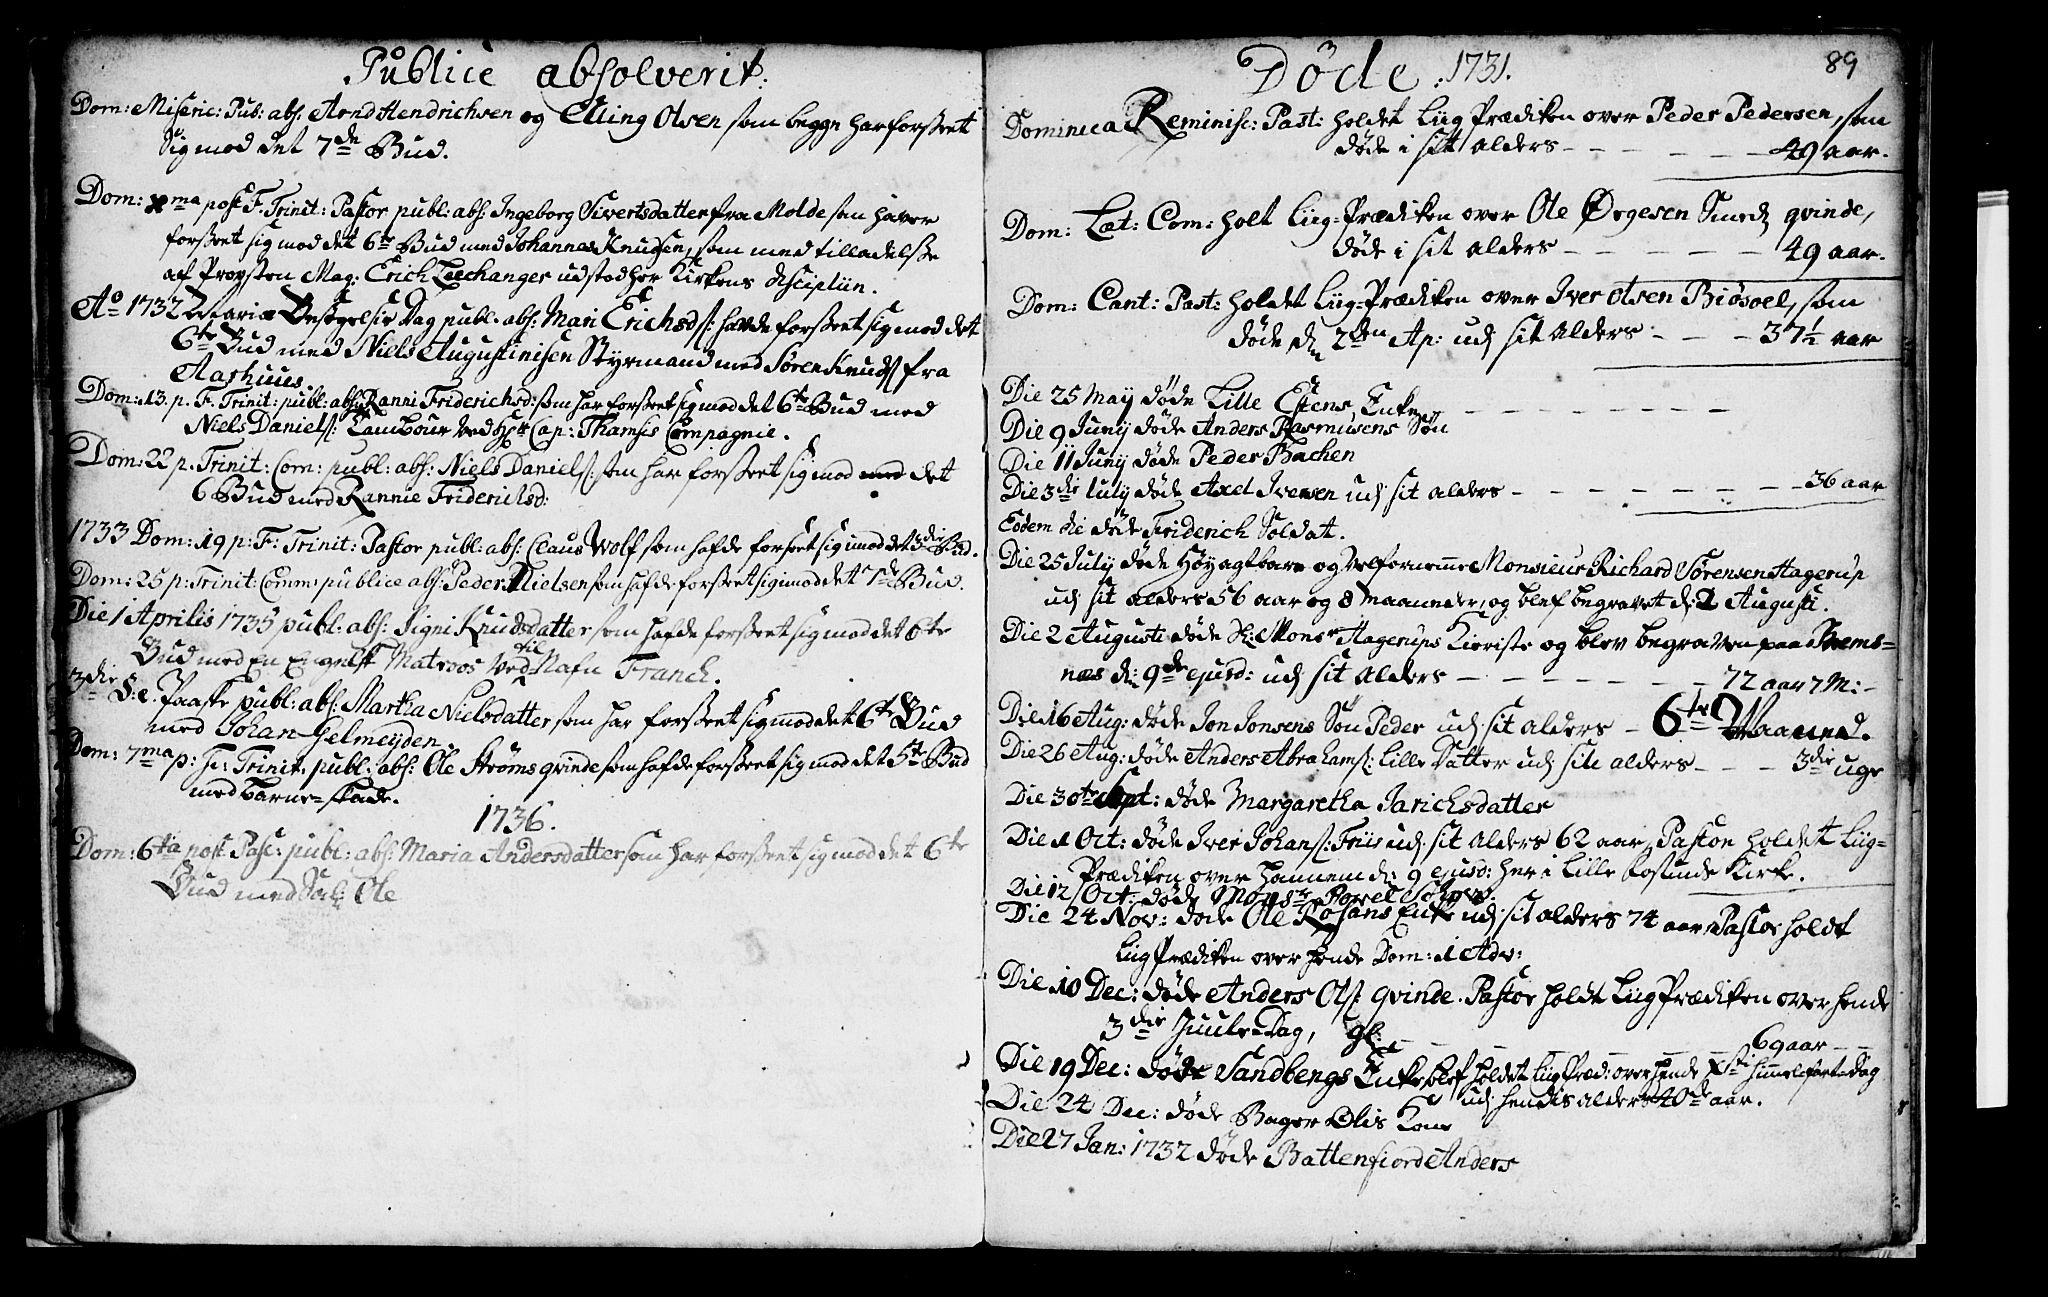 Publice absolverit:
Dom: Miseric: Pub: abs: Arnd Hendrichsen og Elling Olsen som begge har forseet
Sig mod det 7de Bud.
Dom: Xma post F. Trinit: Pastor publ: abs: Ingeborg Sivertsdatter fra Molde som haver
forseet sig mod det 6te Bud med Johannes Knudsen, som med tilladelse
af Provsten Mag: Erich Leechanger udstod her Kirkens disciplin.
Ao 1732 Mariæ Besøgelsis Dag publ. abs: Mari Erichsd/: havde forseet sig mod det
6te Bud med Niels Augustinisen Styrmand med Søren Knuds/ fra
Aarhuus.
Dom: 13. p. F. Trinit: publ: abs: Ranni Friderichsd: som har forseet sig mod det 6te Bud med
Niels Daniels/: Tambour ved Hr Cap: Thamsis Compagnie.
Dom: 22 p. Trinit: Com: publ: abs: Niels Daniels/: som har forseet sig mod med det
6 Bud med Rannie Friderichsd:
1733 Dom: 19 p: F: Trinit: Pastor publ: abs: Claus Wolf som hafde forseet sig imod det 3die Bud.
Dom: 25 p: Trinit: Comm: publice abs: Peder Nielsen som hafde forseet sig imod det 7de Bud.
Die 1 Aprilis 1735 publ: abs: Signi Knudsdatter som hafde forseet sig mod det 6te
Bud med En Engelsk Matroos ved til Nafn Franch.
3die S: e. Paaske publ: abs: Martha Nielsdatter som har forseet sig mod det 6te Bud
med Johan Gelmeyden.
Dom: 7ma p: F: Trinit: publ: abs: Ole Strøms qvinde som hafde forseet sig mod det 5te Bud
med barne-skade.
1736.
Dom: 6ta post Pasc: publ: abs: Maria Andersdatter som har forseet sig mod det 6te
Bud med Ole
Døde 1731.
89
Dominica Reminisc: Past: holdet Liig Prædiken over Peder Pedersen, som
døde i sit alders - - - - - - 49 aar.
Dom: Læt: Com: holt Liig-Prædiken over Ole Ørgesen Smeds qvinde,
døde i sit alders - - - - - - 49 aar.
Dom: Cant: Past: holdet Liig-Prædiken over Iver Olsen Biøsvel, som
døde den 2den Ap: udi sit alders - - - 37½ aar
Die 25 May døde Lille Estens Enke - - - - - - - -
Die 9 Junij døde Anders Rasmusens Søn
Die 11 Junij døde Peder Bachen
Die 3die July døde Axel Iversen udi sit alders - - - - - - - 36 aar
Eodem die døde Friderich Soldat.
Die 25 July døde Høyagtbare og Velfornemme Monsieur Richard Sørensen Hagerup
udi sit alders 56 aar og 8 maaneder, og blef begravet d: 2 Augusti.
Die 2 Augusti døde Sl: Monsr Hagerups Kieriste og blev begraven paa Brems-
næs d: 9de ejusd: udi sit alders - - - - - - - 72 aar 7 M: -
Die 16 Aug: døde Jon Jonsens Søn Peder udi sit alders - 6te Maaned.
Die 26 Aug: døde Anders Abrahams/: Lille Datter udi sit alders - - - 3die uge
Die 30te Sept: døde Margaretha Jarichsdatter
Die 1 Oct: døde Iver Johans/: Friis udi sit alders 62 aar, Pastor holdet Liig-
Prædiken over hannem d: 9 ejusd: her i Lille Fosunds Kirke.
Die 12 Oct: døde Monsr Povel
Die 24 Nov: døde Ole Rosans Enke udi sit alders 74 aar, Pastor holdt
Liig Prædiken over hende Dom: 1 Adv:
Die 10 Dec: døde Anders Ols/: qvinde. Pastor holdt Liig Prædiken over hende
3die Juule-Dag, gl: - - - - - - 69 aar - -
Die 19 Dec: døde Sandbergs Enke, blef holdet Liig Præd: over hende Xsti Himmelfarts-Dag
udi hendis alders 40de aar.
Die 24 Dec: døde Bager Olis Kone
Die 27 Jan: 1732 døde Battenfiord Anders